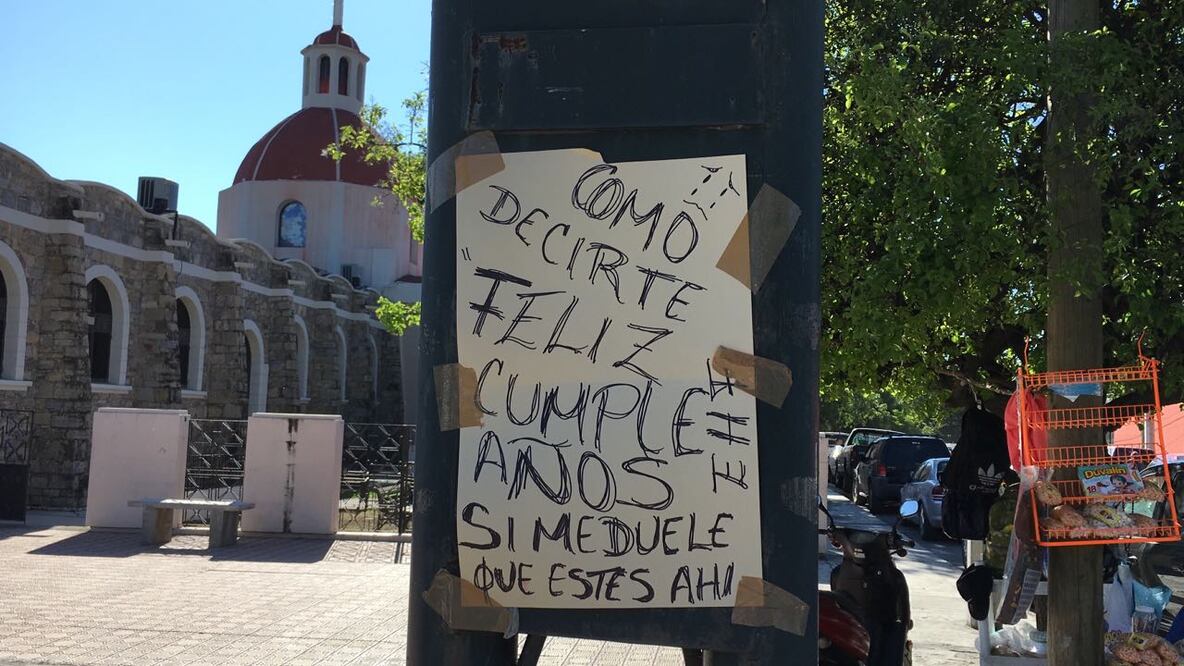 COMO
DECIRTE
"FELIZ
CUMPLE
AÑOS
SI ME DUELE
QUE ESTES AHI
Duvalin
18
adidas